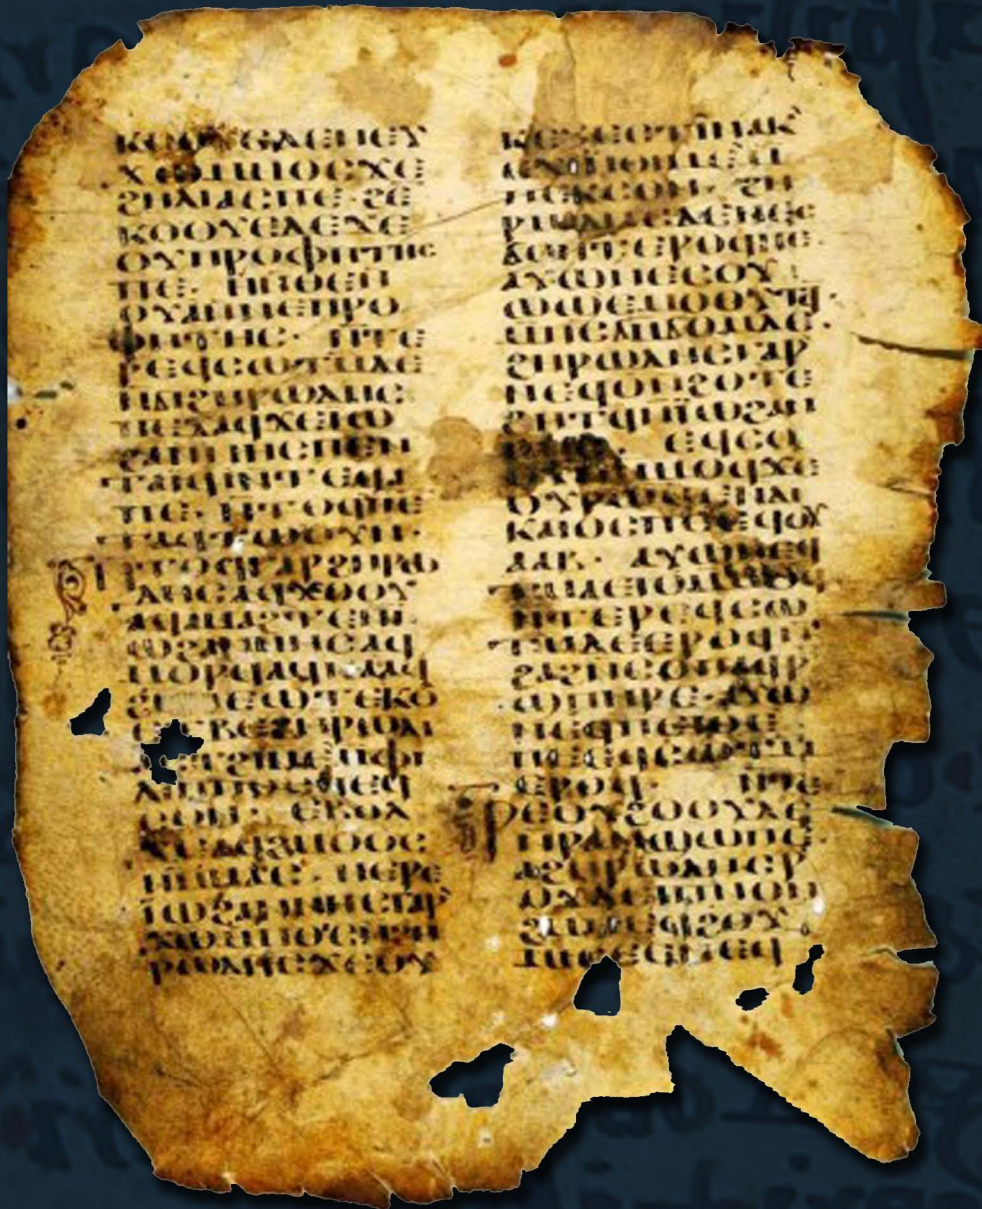 ⲕⲟⲟⲩⲉⲇⲉⲛⲉⲩ
ϫⲱⲙⲙⲟⲥϫⲉ
ϩⲏⲗⲓⲁⲥⲡⲉ· ϩⲉ
ⲕⲟⲟⲩⲉⲇⲉϫⲉ
ⲟⲩⲡⲣⲟⲫⲏⲧⲏⲥ
ⲡⲉ· ⲛⲑⲉⲛ
ⲟⲩⲁⲛⲛⲉⲡⲣⲟ
ⲫⲏⲧⲏⲥ· ⲛⲧⲉ
ⲣⲉϥⲥⲱⲧⲙⲇⲉ
ⲛϭⲓϩⲏⲣⲱⲇⲏⲥ
ⲡⲉϫⲁϥϫⲉⲓⲱ
ϩⲁⲛⲛⲏⲥⲡⲉⲛ
ⲧⲁⲓϥⲓⲛⲧⲉϥⲁ
ⲡⲉ· ⲛⲧⲟϥⲡⲉ
ⲛⲧⲁϥⲧⲱⲟⲩⲛ·
ⲛⲧⲟϥⲅⲁⲣϩⲏⲣⲱ
ⲇⲏⲥⲁϥϫⲟⲟⲩ
ⲁϥⲁⲙⲁϩⲧⲉⲛⲓ
ⲱϩⲁⲛⲛⲏⲥⲁϥ
ⲙⲟⲣϥⲁϥⲕⲁⲁϥ
ϩⲙ ⲉϣⲧⲉⲕⲟ
ⲉⲧⲃⲉϩⲏⲣⲱⲇⲓ
ⲁⲥⲑⲓⲙⲉⲙⲫⲓ
ⲗⲓⲡⲡⲟⲥⲡⲉϥ
ⲥⲟⲛ· ⲉⲃⲟⲗ
ϫⲉⲁϥϩⲙⲟⲟⲥ
ⲛⲙⲙⲁⲥ· ⲛⲉⲣⲉ
ⲓⲱϩⲁⲛⲛⲏⲥⲅⲁⲣ
ϫⲱⲙⲙⲟⲥⲛϩⲏ
ⲣⲱⲇⲏⲥϫⲉⲟⲩ
ⲕⲉⲝⲉⲥⲧⲓⲛⲁⲕ
ⲉϫⲓⲑⲓⲙⲉⲙ
ⲡⲉⲕⲥⲟⲛ· ϩⲏ
ⲣⲱⲇⲓⲁⲥⲇⲉⲛⲉⲥ
ϭⲱⲛⲧⲉⲣⲟϥⲡⲉ·
ⲁⲩⲱⲛⲉⲥⲟⲩ
ⲱϣⲉⲙⲟⲟⲩⲧϥ·
ⲙⲡⲥϭⲙϭⲟⲙⲇⲉ·
ϩⲏⲣⲱⲇⲏⲥⲅⲁⲣ
ⲛⲉϥⲟⲛϩⲟⲧⲉ
ϩⲏⲧϥⲛⲓⲱϩⲁⲛ
ⲉϥⲥⲟ
ⲙⲙⲟϥϫⲉ
ⲟⲩⲣⲱⲙⲉⲛⲇⲓ
ⲕⲁⲓⲟⲥⲡⲉⲉϥⲟⲩ
ⲁⲁⲃ· ⲁⲩⲱⲛⲉϥ
ⲛⲧⲉⲣⲉϥⲥⲱ
ⲧⲙⲇⲉⲉⲣⲟϥⲛ
ϩⲁϩⲛⲥⲟⲡⲁϥⲣ
ϣⲡⲏⲣⲉ· ⲁⲩⲱ
ⲉⲣⲟϥ· ⲛⲧⲉ
ⲣⲉⲟⲩϩⲟⲟⲩⲇⲉ
ⲛⲣⲁϣⲱⲡⲉ
ⲁϩⲏⲣⲱⲇⲏⲥⲣ
ⲟⲩⲇⲉⲓⲡⲛⲟⲛ
ϩⲙⲡⲉϥϩⲟⲩ
ⲙⲓⲥⲉⲛⲛⲉϥ